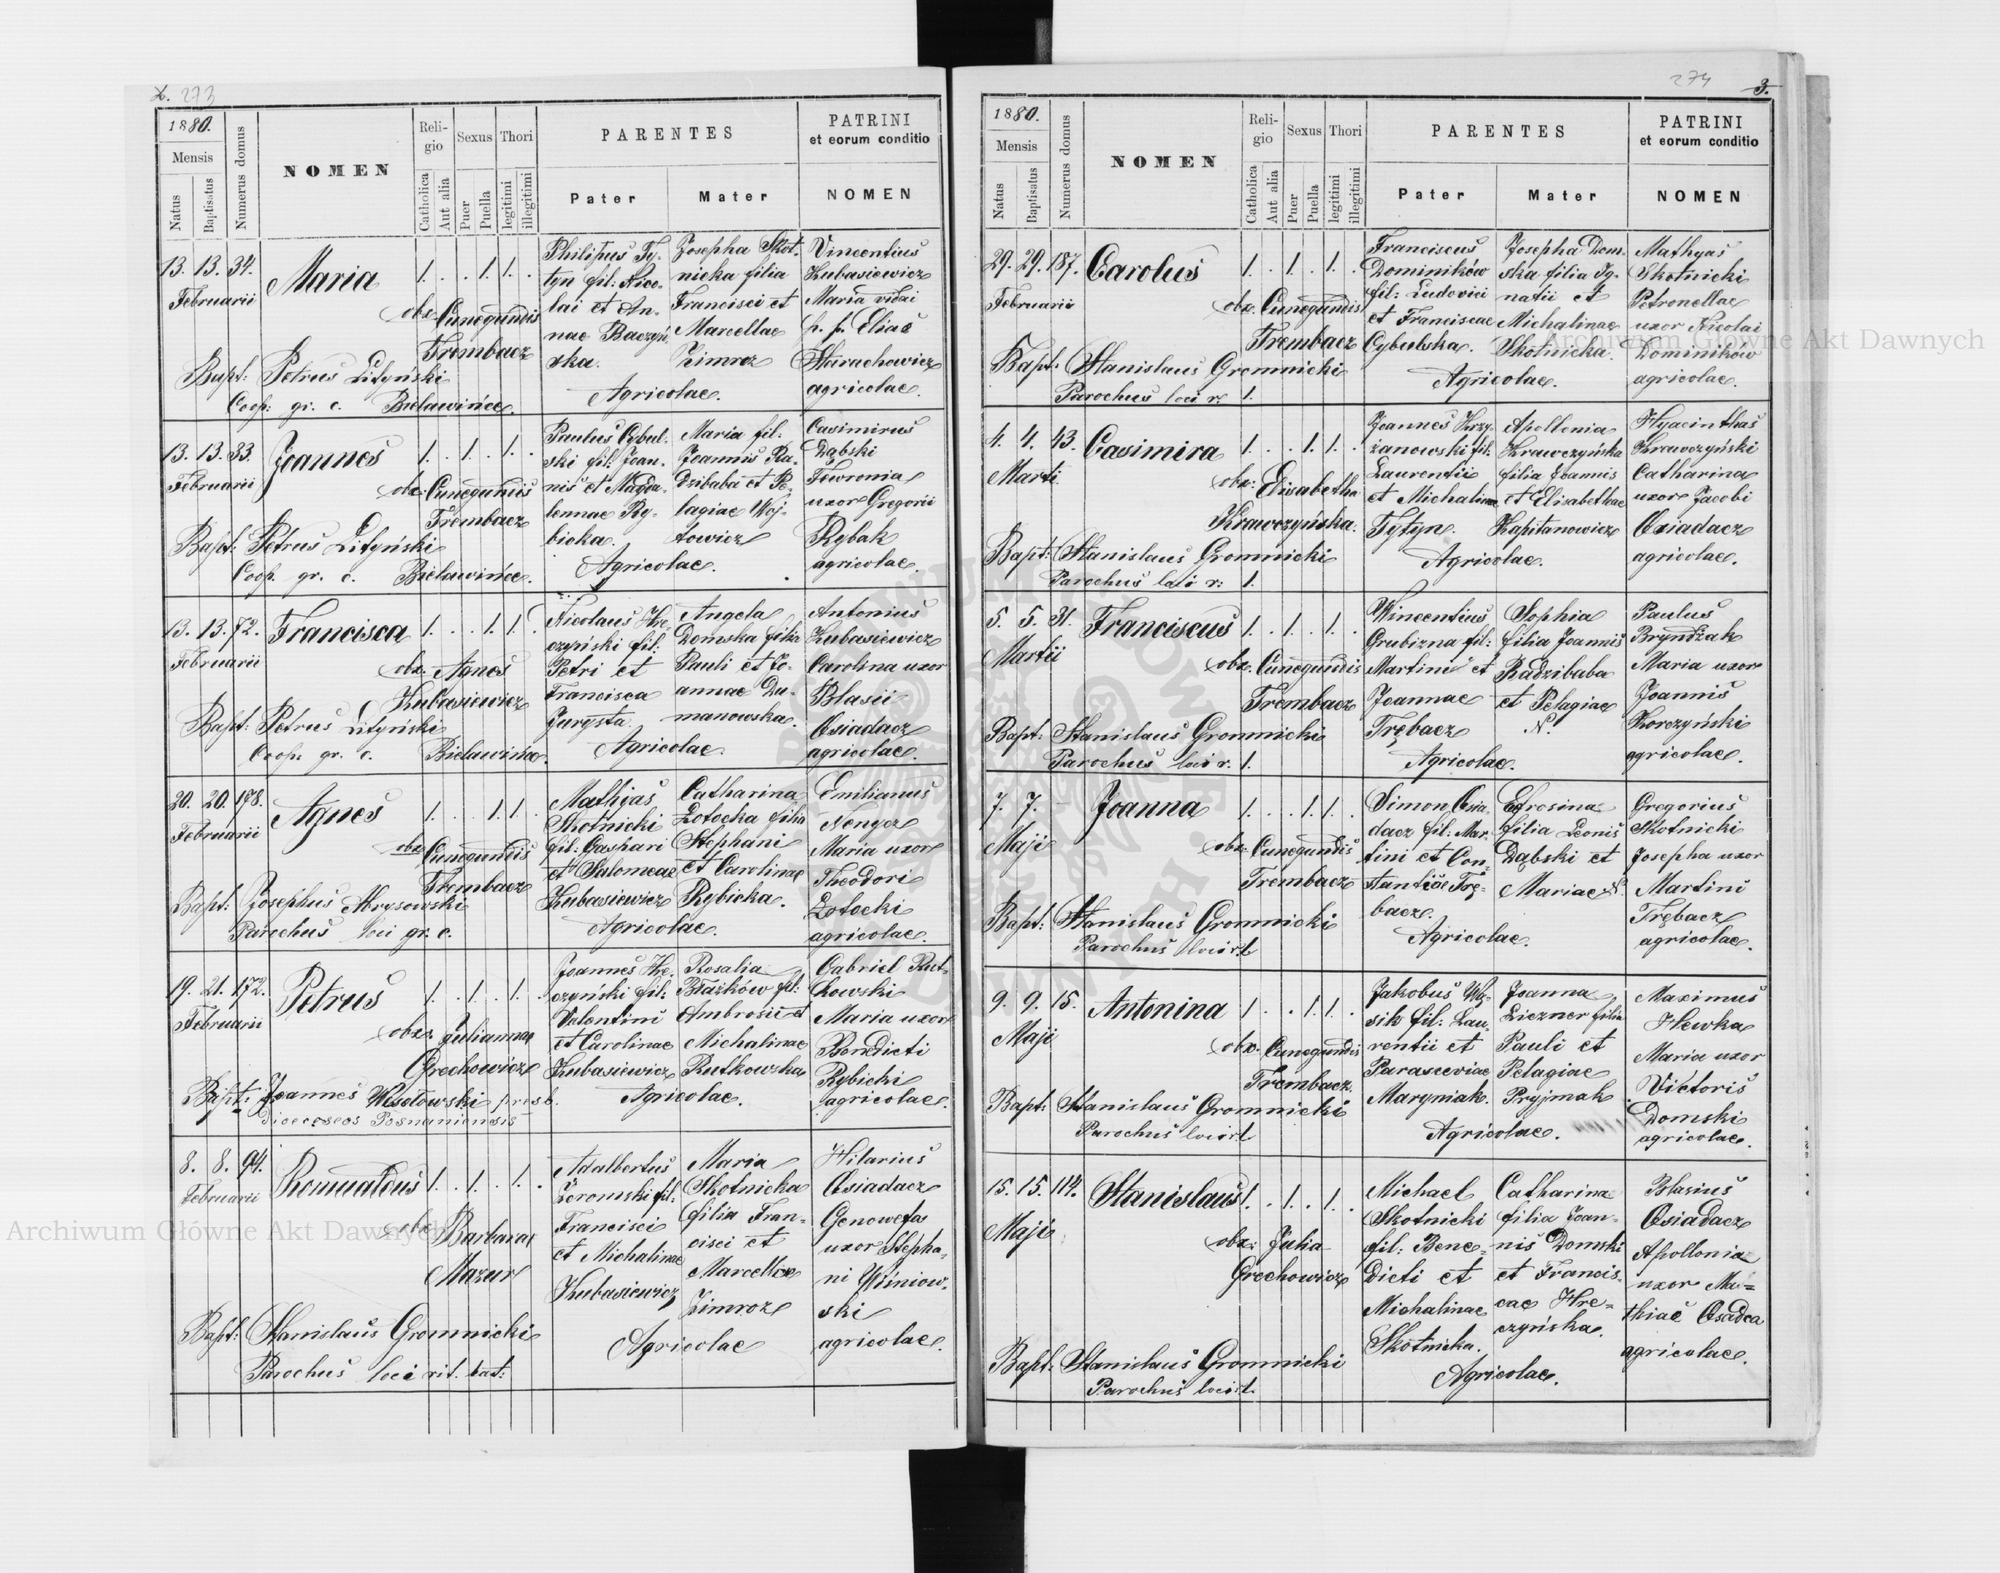 2. 273
1880.
Mensis
Natus
Baptisatus
Numerus domus
NOMEN
Reli-
gio
Catholica
Aut alia
Sexus
Puer
Puella
Thori
legitimi
illegitimi
PARENTES
Pater
Mater
PATRINI
et eorum conditio
NOMEN
13. 13. 34.
Februarii
Maria
1. . . 1. 1. .
obx. Cunegundis
Trembacz
Bapt: Petrus Lityński
Coop: gr. c. Bielawińce.
Philipus Ty-
tyn fil: Nico-
lai et An-
nae Baczyń-
ska.
Josepha Skot-
nicka filia
Francisci et
Marcellae
Zimroz
Agricolae.
Vincentius
Kubasiewicz
Maria vidui
p. p. Eliae
Starachowicz
agricolae.
13. 13. 83.
Februarii
Joannes
1. . 1. . 1. .
obx. Cunegundis
Trembacz
Bapt: Petrus Lityński
Coop. gr. c. Bielawińce.
Paulus Cybul-
ski fil: Joan-
nis et Magda-
lennae Ry-
bicka.
Maria fil:
Joannis Ra-
dzibaba et Pe-
lagiae Woj-
towicz
Agricolae.
Casimirus
Dąbski
Fewronia
uxor Gregorii
Rybak
agricolae.
13. 13. 72.
Februarii
Francisca
1. . . 1. 1.
obx. Agnes
Kubasiewicz
Bapt: Petrus Lityński
Coop. gr. c. Bielawińce.
Nicolaus Hre-
czyński fil:
Petri et
Francisca
Jurysta.
Angela
Domska filia
Pauli et Jo-
annae Du-
manowska.
Agricolae.
Antonius
Kubasiewicz
Carolina uxor
Blasii
Osiadacz
agricolae.
20. 20. 178.
Februarii
Agnes
1. . . 1. 1. .
obx. Cunegundis
Trembacz
Bapt: Josephus Mrysowski
Parochus loci gr. c.
Mathjas
Skotnicki
fil: Gaspari
et Salomeae
Kubasiewicz
Catharina
Zotocka filia
Stephani
et Carolinae
Rybicka.
Agricolae.
Emilianus
Nengez
Maria uxor
Theodori
Zotocki
agricolae.
19. 21. 172.
Februarii
Petrus
1. . 1. . 1. .
obx. Julianna
Grechowicz
Bapt: Joannes Wisłowski presb.
Dioeceseos Posnaniensis
Joannes Hre-
czyński fil:
Valentini
et Carolinae
Kubasiewicz
Rosalia
Błażków fil:
Ambrosii et
Michalinae
Rutkowska
Agricolae.
Gabriel Rut-
kowski
Maria uxor
Benedicti
Rybicki
agricolae.
8. 8. 94.
Februarii
Romualdus
1. . 1. . 1. .
obx. Barbara
Mazur
Bapt: Stanislaus Gromnicki
Parochus loci rit. lat:
Adalbertus
Żeromski fil:
Francisci
et Michalinae
Kubasiewicz
Maria
Skotnicka
filia Fran-
cisci et
Marcellae
Zimroz
Agricolae
Hilarius
Osiadacz
Genowefa
uxor Stepha-
ni Wiśniow-
ski
agricolae.
274 3.
1880.
Mensis
Natus
Baptisatus
Numerus domus
NOMEN
Reli-
gio
Catholica
Aut alia
Sexus
Puer
Puella
Thori
legitimi
illegitimi
PARENTES
Pater
Mater
PATRINI
et eorum conditio
NOMEN
29. 29. 187.
Februarii
Carolus
1. . 1. . 1. .
obx. Cunegundis
Trembacz
Bapt: Stanislaus Gromnicki
Parochus loci r. l.
Franciscus
Dominików
fil: Ludovici
et Franciscae
Cybulska.
Josepha Dom-
ska filia Ig-
natii et
Michalinae
Skotnicka.
Agricolae.
Mathyas
Skotnicki
Petronellae
uxor Nicolai
Dominików
agricolae.
4. 4. 43.
Marti
Casimira
1. . . 1. 1. .
obx: Elisabetha
Krawczyńska.
Bapt: Stanislaus Gromnicki
Parochus loci r: l.
Joannes Krzy-
żanowski fil:
Laurentii
et Michalinae
Tytyn.
Apollonia
Krawczyńska
filia Joannis
et Elisabethae
Kapitanowicz
Agricolae.
Hyacinthus
Krawczyński
Catharina
uxor Jacobi
Osiadacz
agricolae.
5. 5. 31.
Martii
Franciscus
1. . 1. . 1. .
obx. Cunegundis
Trembacz
Bapt: Stanislaus Gromnicki
Parochus loci r. l.
Wincentius
Grubizna fil:
Martini et
Joannae
Trębacz
Sophia
filia Joannis
Radzibaba
et Pelagiae
N.
Agricolae.
Paulus
Bryndzak
Maria uxor
Joannis
Korczyński
agricolae.
7. 7. -
Maji
Joanna
1. . . 1. 1. .
obx. Cunegundis
Trembacz
Bapt: Stanislaus Gromnicki
Parochus loci r. l.
Simon Osia-
dacz fil: Mar-
tini et Con-
stantiae Trę-
bacz.
Efrosina
filia Leonis
Dąbski et
Mariae N.
Agricolae.
Gregorius
Skotnicki
Josepha uxor
Martini
Trębacz
agricolae.
9. 9. 15.
Maji
Antonina
1. . . 1. 1. .
obx. Cunegundis
Trembacz.
Bapt: Stanislaus Gromnicki
Parochus loci r. l.
Jakobus Wą-
sik fil: Lau-
rentii et
Parasceviae
Maryniak.
Joanna
Liczner filia
Pauli et
Pelagiae
Pryjmak
Agricolae.
Maximus
Hewka
Maria uxor
Victoris
Domski
agricolae.
15. 15. 114.
Maji
Stanislaus
1. . 1. . 1. .
obx: Julia
Grechowicz
Bapt: Stanislaus Gromnicki
Parochus loci r. l.
Michael
Skotnicki
fil: Bene-
dicti et
Michalinae
Skotnicka.
Catharina
filia Joan-
nis Domski
et Francis-
cae Hre-
czyńska.
Agricolae.
Blasius
Osiadacz
Apollonia
uxor Ma-
thiae Osadca
agricolae.
Archiwum Główne Akt Dawnych
Archiwum Główne Akt Dawnych